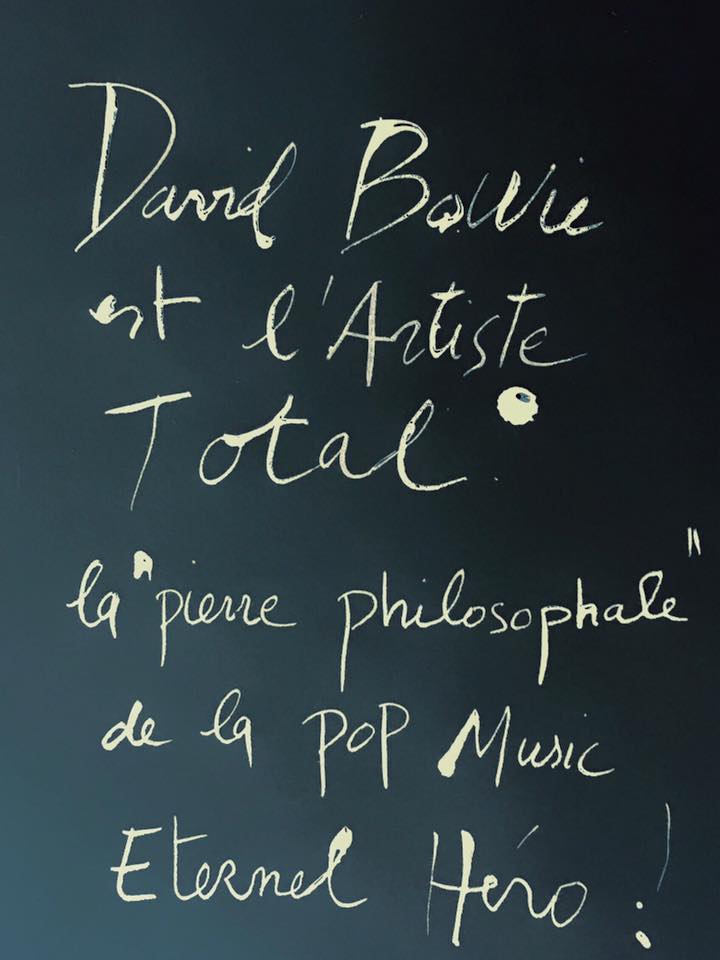 David Bowie
est l'Artiste
Total.
la "pierre philosophale"
de la POP Music
Eternel Héro !